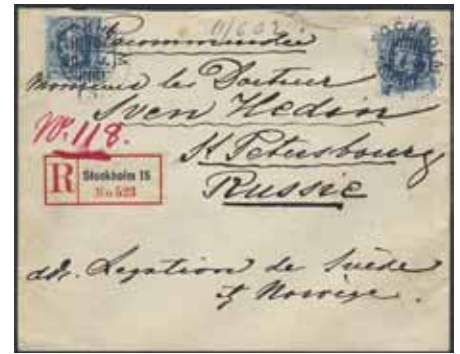 Recommandée
Monsieur les Docteur
Sven Hedin
No. 118.
St Petersbourg
Russie
R Stockholm 15
No 523
adr. Legation de Suède
& Norvège.